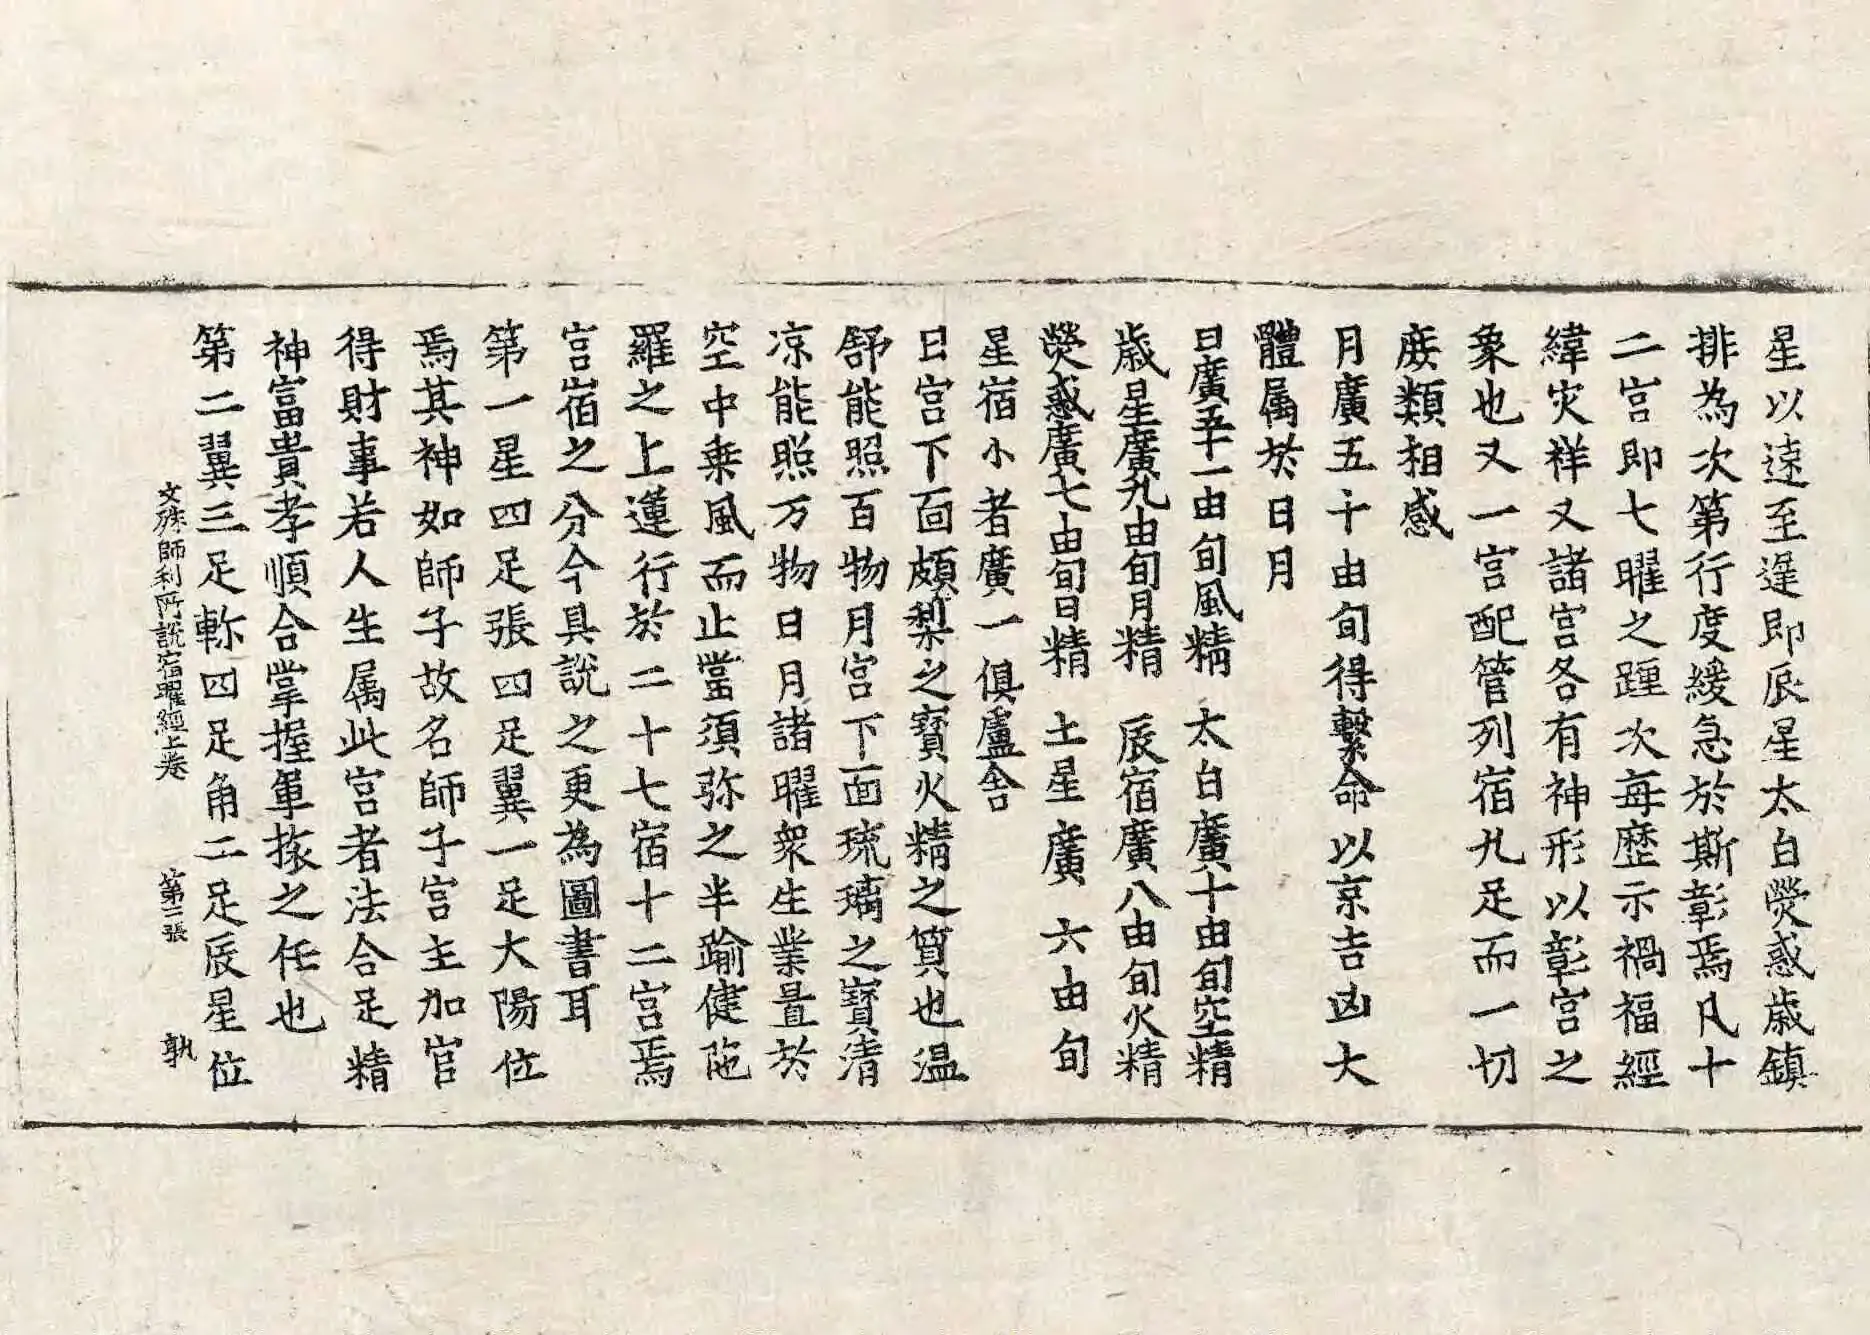 星以速至遲即辰星太白熒惑歲鎮
排為次第行度緩急於斯彰焉凡十
二宮即七曜之躔次每歷示禍福經
緯灾祥又諸宮各有神形以彰宮之
象也又一宮配管列宿九足而一切
庶類相感
月廣五十由旬得繫命以京吉凶大
體属於日月
日廣五十一由旬風精 太白廣十由旬空精
歲星廣九由旬月精 辰宿廣八由旬火精
熒惑廣七由旬日精 土星廣六由旬
星宿小者廣一俱盧舍
日宮下面頗梨之寶火精之質也温
舒能照百物月宮下面琉璃之寶清
凉能照万物日月諸曜衆生業置於
空中乗風而止當須弥之半踰健陁
羅之上運行於二十七宿十二宮焉
宮宿之分今具說之更為圖書耳
第一星四足張四足翼一足大陽位
焉其神如師子故名師子宮主加官
得財事若人生属此宮者法合足精
神富貴孝順合掌握軍㨿之任也
第二翼三足軫四足角二足辰星位
文殊師利所說宿曜經上卷 第二張 孰